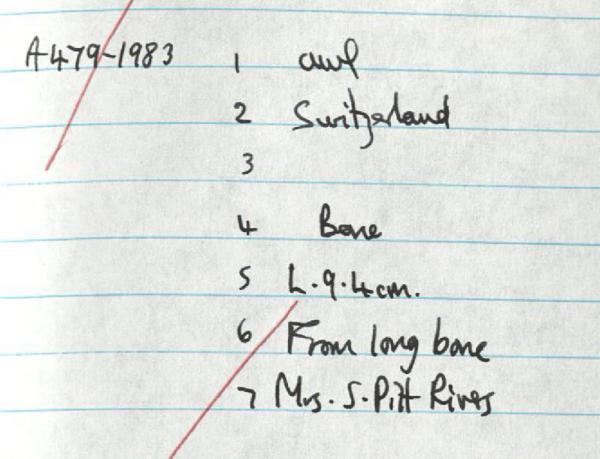 A479-1983 1 awl
2 Switzerland
3
4 Bone
5 L.9.4cm.
6 From long bone
7 Mrs. S. Pitt Rivers